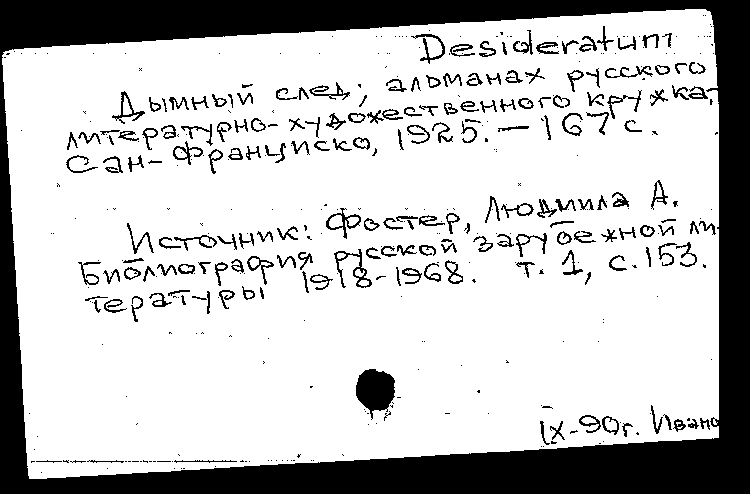 Desideratum
Дымный след; альманах русского
литературно-художественного кружка,
Сан-Франциско, 1925. — 167 с.
Источник: Фостер, Людмила А.
Библиография русской зарубежной ли-
тературы 1918-1968. т. 1, с. 153.
IX-90г. Ивано